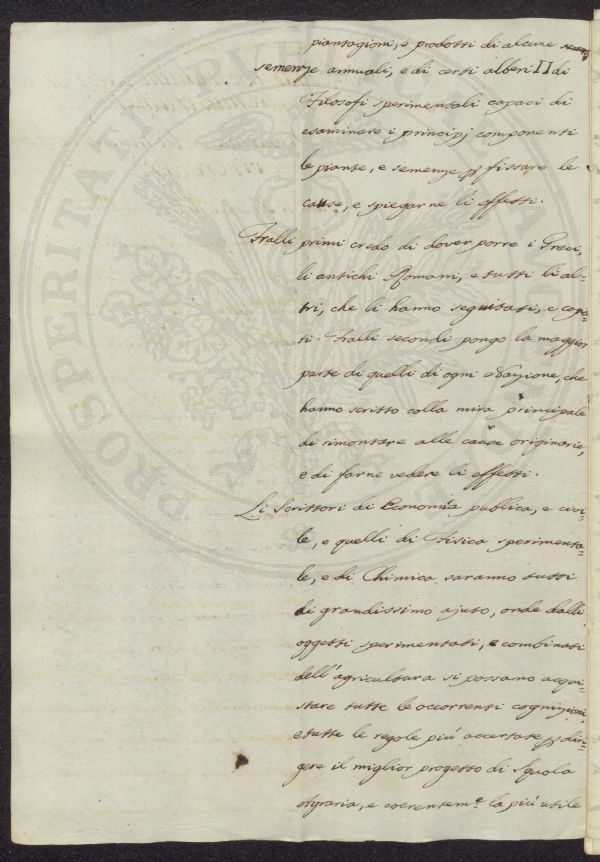 piantagioni, e prodotti di alcune
semenze annuali, e di certi alberi II di
Filosofi sperimentali capaci di
esaminare i principj componenti
le piante, e semenze p fissare le
cause, e spiegarne li effetti.
Fralli primi credo di dover porre i Greci,
li antichi Romani, e tutti li al-
tri, che li hanno seguitati, e copia-
ti. Fralli secondi pongo la maggior
parte di quelli di ogni Nazione, che
hanno scritto colla mira principale
di rimontare alle cause originarie,
e di farne vedere li effetti.
Li Scrittori di Economia publica, e civi-
le, e quelli di Fisica sperimenta-
le, e di Chimica saranno tutti
di grandissimo ajuto, onde dalli
oggetti sperimentati, e combinati
dell'agricultura si possano acqui-
stare tutte le occorrenti cognizioni,
e tutte le regole più accertate p diri-
gere il miglior progetto di Squola
Agraria, e coerentem.e la più utile
PROSPERITATI PUBLICAE